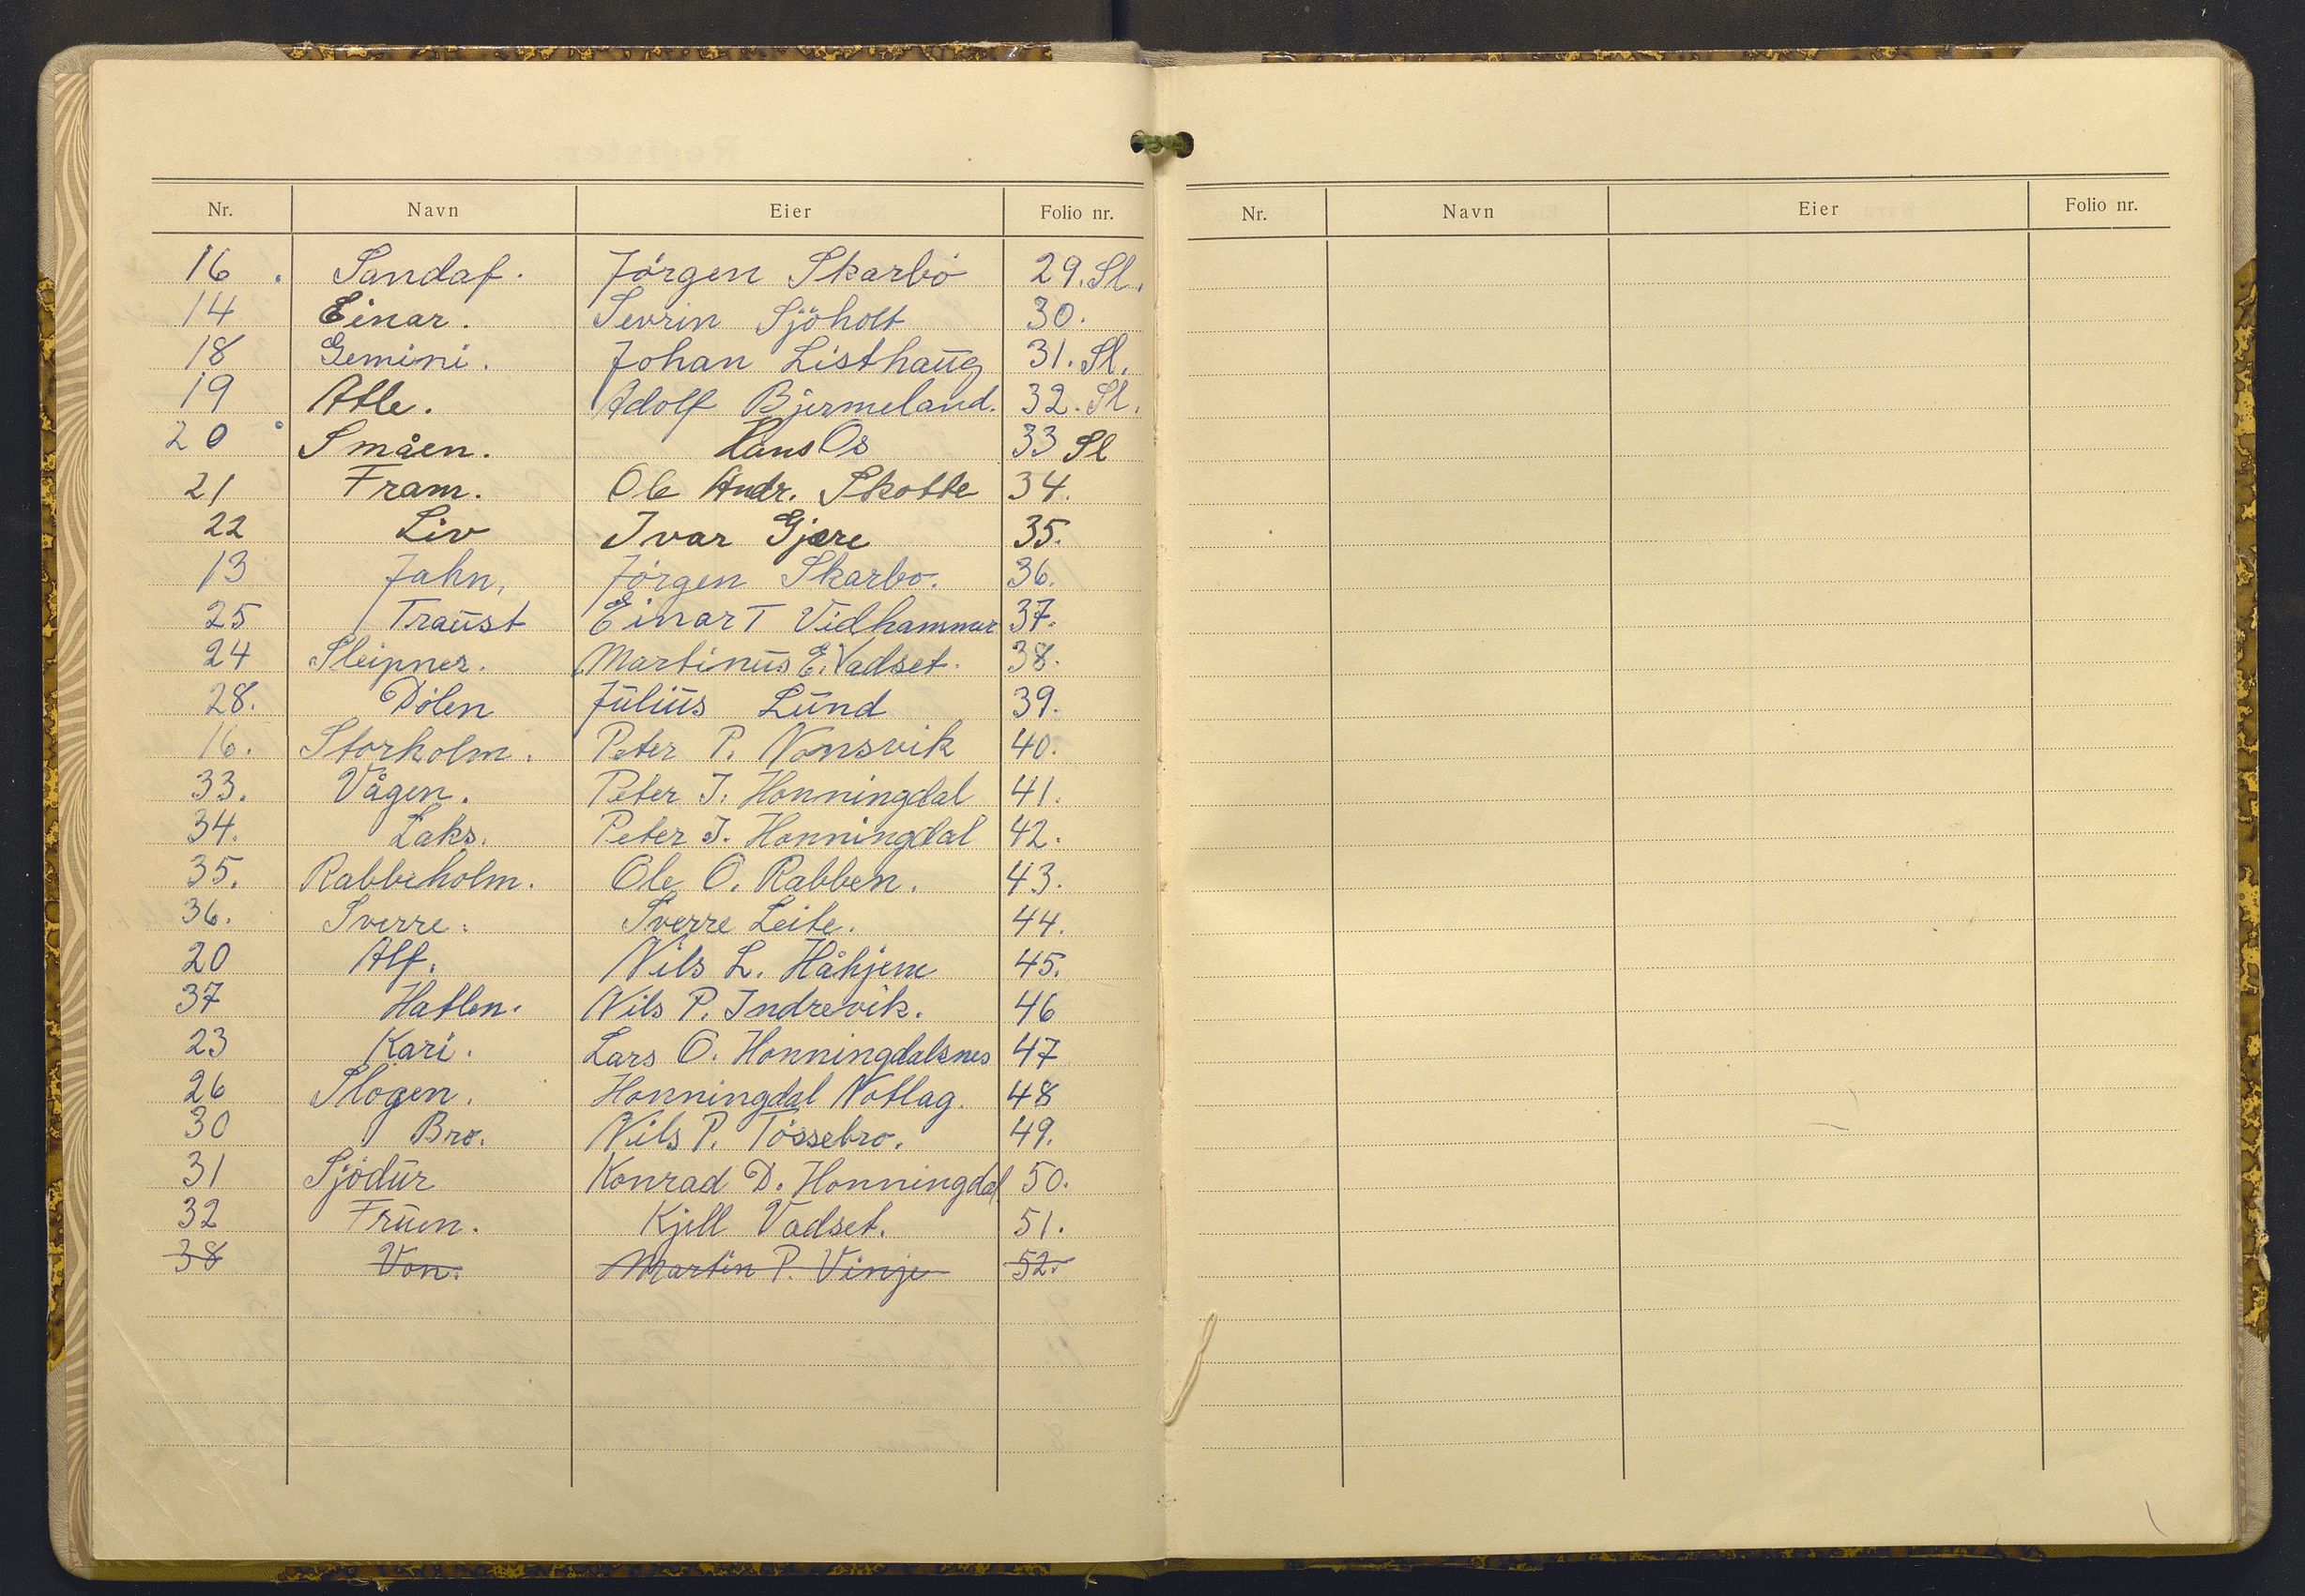 Nr. Navn Eier Folio nr.
16 . Sandaf. Jörgen Skarbö 29. Sl.
14 Einar. Sevrin Sjöholt 30.
18 Gemini. Johan Listhaug 31. Sl.
19 Atle. Adolf Bjermeland. 32. Sl.
20 Småen. Hans Os 33 Sl
21 Fram. Ole Andr. Skotte 34.
22 Liv Ivar Gjære 35.
13 Jahn, Jörgen Skarbo. 36.
25 Traust Einar T Vidhammer 37.
24 Sleipner. Martinus E. Vadset. 38.
28. Dölen Julius Lund 39.
16. Storholm. Peter P. Nonsvik 40.
33. Vågen. Peter J. Honningdal 41.
34. Laks. Peter J. Honningdal 42.
35. Rabbeholm. Ole O. Rabben. 43.
36. Sverre. Sverre Leite. 44.
20 Alf. Nils L. Håhjem 45.
37 Hatlen. Nils P. Indrevik. 46
23 Kari. Lars O. Honningdalsnes 47
26 Slogen. Honningdal Notlag. 48
30 Bro. Nils P. Tössebro. 49.
31 Sjödur Konrad D. Honningdal 50.
32 Fruen. Kjell Vadset. 51.
38 Von. Martin P. Vinje 52.
Nr. Navn Eier Folio nr.